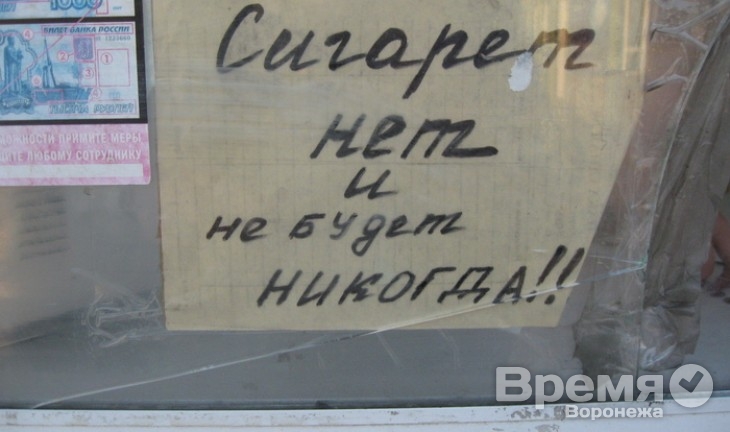 1000
БИЛЕТ БАНКА РОССИИ
ПРИМИТЕ МЕРЫ
ЛЮБОМУ СОТРУДНИКУ
Сигарет
нет
и
не будет
НИКОГДА!!
Время
Воронежа